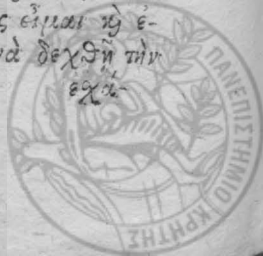 ς εἶμαι ϗ ἐ-
νὰ δεχθῇ τὴν
ἐχά-
ΠΑΝΕΠΙΣΤΗΜΙΟ ΚΡΗΤΗΣ